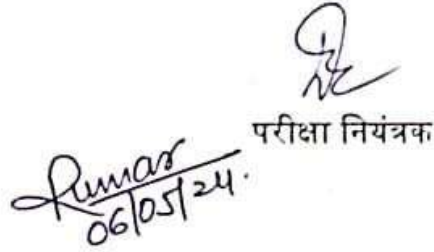 परीक्षा नियंत्रक
Kumar
06/05/24.